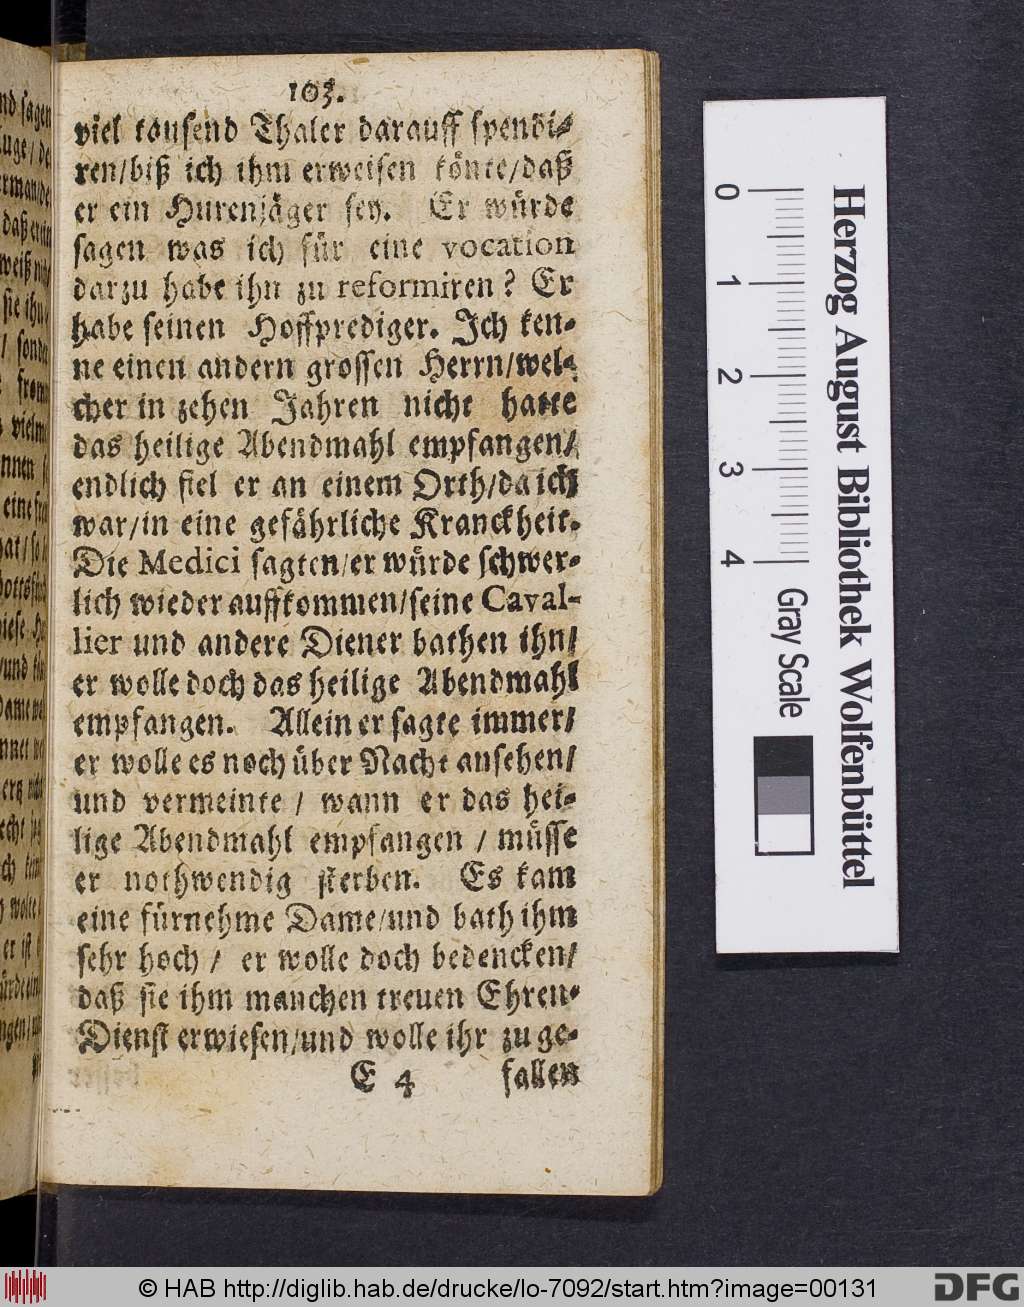 103.
viel tausend Thaler darauff spendi-
ren/biß ich ihm erweisen könte/daß
er ein Hurenjäger sey. Er würde
sagen was ich für eine vocation
darzu habe ihn zu reformiren? Er
habe seinen Hoffprediger. Ich ken-
ne einen andern grossen Herrn/wel-
cher in zehen Jahren nicht hatte
das heilige Abendmahl empfangen/
endlich fiel er an einem Orth/da ich
war/in eine gefährliche Kranckheit.
Die Medici sagten/er würde schwer-
lich wieder auffkommen/seine Caval-
lier und andere Diener bathen ihn/
er wolle doch das heilige Abendmahl
empfangen. Allein er sagte immer/
er wolle es noch über Nacht ansehen/
und vermeinte / wann er das hei-
lige Abendmahl empfangen / müsse
er nothwendig sterben. Es kam
eine fürnehme Dame/und bath ihm
sehr hoch / er wolle doch bedencken/
daß sie ihm manchen treuen Ehren-
Dienst erwiesen/und wolle ihr zu ge-
E 4 fallen
Herzog August Bibliothek Wolfenbüttel
0 1 2 3 4 Gray Scale
© HAB http://diglib.hab.de/drucke/lo-7092/start.htm?image=00131
DFG